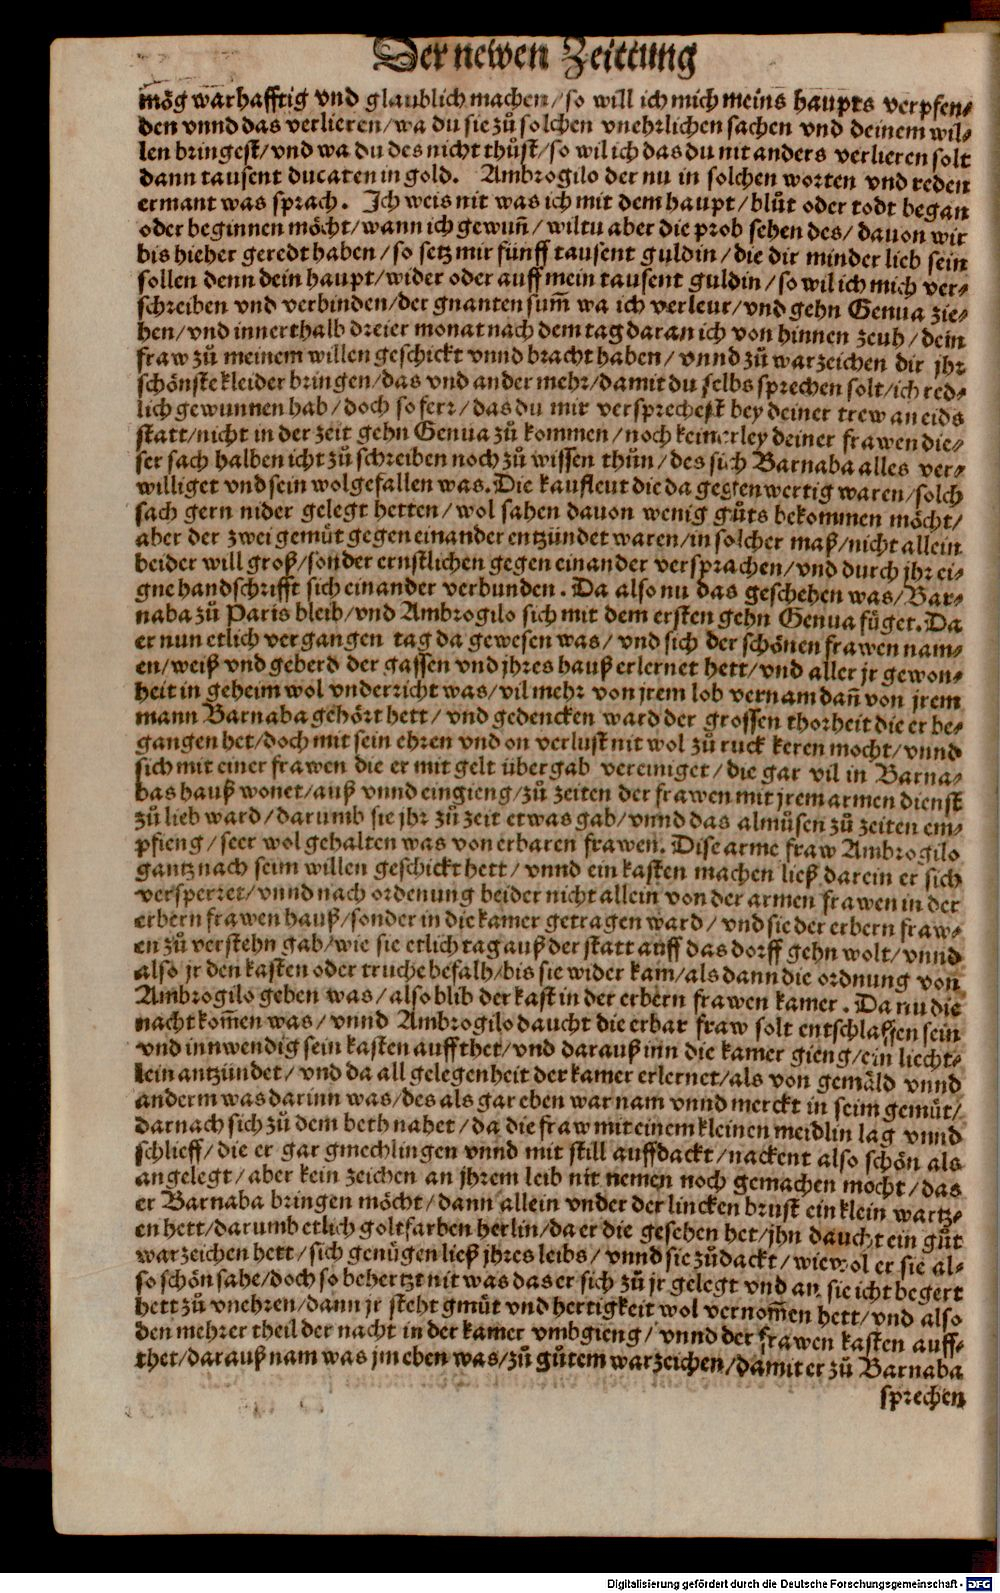 Der newen Zeittung
mög warhafftig vnd glaublich machen/so will ich mich meins haupts verpfen⸗
den vnnd das verlieren/wa du sie zuͦ solchen vnehrlichen sachen vnd deinem wil⸗
len bringest/vnd wa du des nicht thuͦst/so wil ich das du nit anders verlieren solt
dann tausent ducaten in gold. Ambrogilo der nu in solchen worten vnd reden
ermant was sprach. Ich weis nit was ich mit dem haupt/bluͦt oder todt began
oder beginnen moͤcht/wann ich gewuñ/wiltu aber die prob sehen des/dauon wir
bis hieher geredt haben/so setz mir fünff tausent guldin/die dir minder lieb sein
sollen denn dein haupt/wider oder auff mein tausent guldin/so wil ich mich ver⸗
schreiben vnd verbinden/der gnanten sum̃ wa ich verleur/vnd gehn Genua zie⸗
hen/vnd innerthalb dreier monat nach dem tag daran ich von hinnen zeuh/dein
fraw zuͦ meinem willen geschickt vnnd bracht haben/vnnd zuͦ warzeichen dir jhr
schoͤnste kleider bringen/das vnd ander mehr/damit du selbs sprechen solt/ich red⸗
lich gewunnen hab/doch so ferr/das du mir versprechest bey deiner trew an eids
statt/nicht in der zeit gehn Genua zuͦ kommen/noch keinerley deiner frawen die⸗
ser sach halben icht zuͦ schreiben noch zuͦ wissen thuͦn/des sich Barnaba alles ver⸗
williget vnd sein wolgefallen was. Die kaufleut die da gegenwertig waren/solch
sach gern nider gelegt hetten/wol sahen dauon wenig guͦts bekommen moͤcht/
aber der zwei gemuͤt gegen einander entzündet waren/in solcher maß/nicht allein
beider will groß/sonder ernstlichen gegen einander versprachen/vnd durch jhr ei⸗
gne handschrifft sich einander verbunden. Da also nu das geschehen was/Bar⸗
naba zuͦ Paris bleib/vnd Ambrogilo sich mit dem ersten gehn Genua fuͤget. Da
er nun etlich vergangen tag da gewesen was/vnd sich der schoͤnen frawen nam⸗
en/weiß vnd geberd der gassen vnd jhres hauß erlernet hett/vnd aller jr gewon⸗
heit in geheim wol vnderricht was/vil mehr von jrem lob vernam dañ von jrem
mann Barnaba gehoͤrt hett/vnd gedencken ward der grossen thorheit die er be⸗
gangen het/doch mit sein ehren vnd on verlust nit wol zuͦ ruck keren mocht/vnnd
sich mit einer frawen die er mit gelt übergab vereiniget/die gar vil in Barna⸗
bas hauß wonet/auß vnnd eingieng/zuͦ zeiten der frawen mit jrem armen dienst
zuͦ lieb ward/darumb sie jhr zuͦ zeit etwas gab/vnnd das almuͦsen zuͦ zeiten em⸗
pfieng/seer wol gehalten was von erbaren frawen. Dise arme fraw Ambrogilo
gantz nach seim willen geschickt hett/vnnd ein kasten machen ließ darein er sich
versperret/vnnd nach ordenung beider nicht allein von der armen frawen in der
erbern frawen hauß/sonder in die kamer getragen ward/vnd sie der erbern fraw⸗
en zuͦ verstehn gab/wie sie etlich tag auß der statt auff das dorff gehn wolt/vnnd
also jr den kasten oder truche befalh/bis sie wider kam/als dann die ordnung von
Ambrogilo geben was/also blib der kast in der erbern frawen kamer. Da nu die
nacht kom̃en was/vnnd Ambrogilo daucht die erbar fraw solt entschlaffen sein
vnd innwendig sein kasten auffthet/vnd darauß inn die kamer gieng/ein liecht⸗
lein antzündet/vnd da all gelegenheit der kamer erlernet/als von gemaͤld vnnd
anderm was darinn was/des als gar eben war nam vnnd merckt in seim gemuͤt/
darnach sich zuͦ dem beth nahet/da die fraw mit einem kleinen meidlin lag vnnd
schlieff/die er gar gmechlingen vnnd mit still auffdackt/nackent also schoͤn als
angelegt/aber kein zeichen an jhrem leib nit nemen noch gemachen mocht/das
er Barnaba bringen moͤcht/dann allein vnder der lincken brust ein klein wartz⸗
en hett/darumb etlich goltfarben herlin/da er die gesehen het/jhn daucht ein guͦt
warzeichen hett/sich genuͤgen ließ jhres leibs/vnnd sie zuͦdackt/wiewol er sie al⸗
so schoͤn sahe/doch so behertzt nit was das er sich zuͦ jr gelegt vnd an sie icht begert
hett zuͦ vnehren/dann jr steht gmuͤt vnd hertigkeit wol vernom̃en hett/vnd also
den mehrer theil der nacht in der kamer vmbgieng/vnnd der frawen kasten auff⸗
thet/darauß nam was jm eben was/zuͦ guͦtem warzeichen/damit er zuͦ Barnaba
sprechen
Digitalisierung gefördert durch die Deutsche Forschungsgemeinschaft - DFG